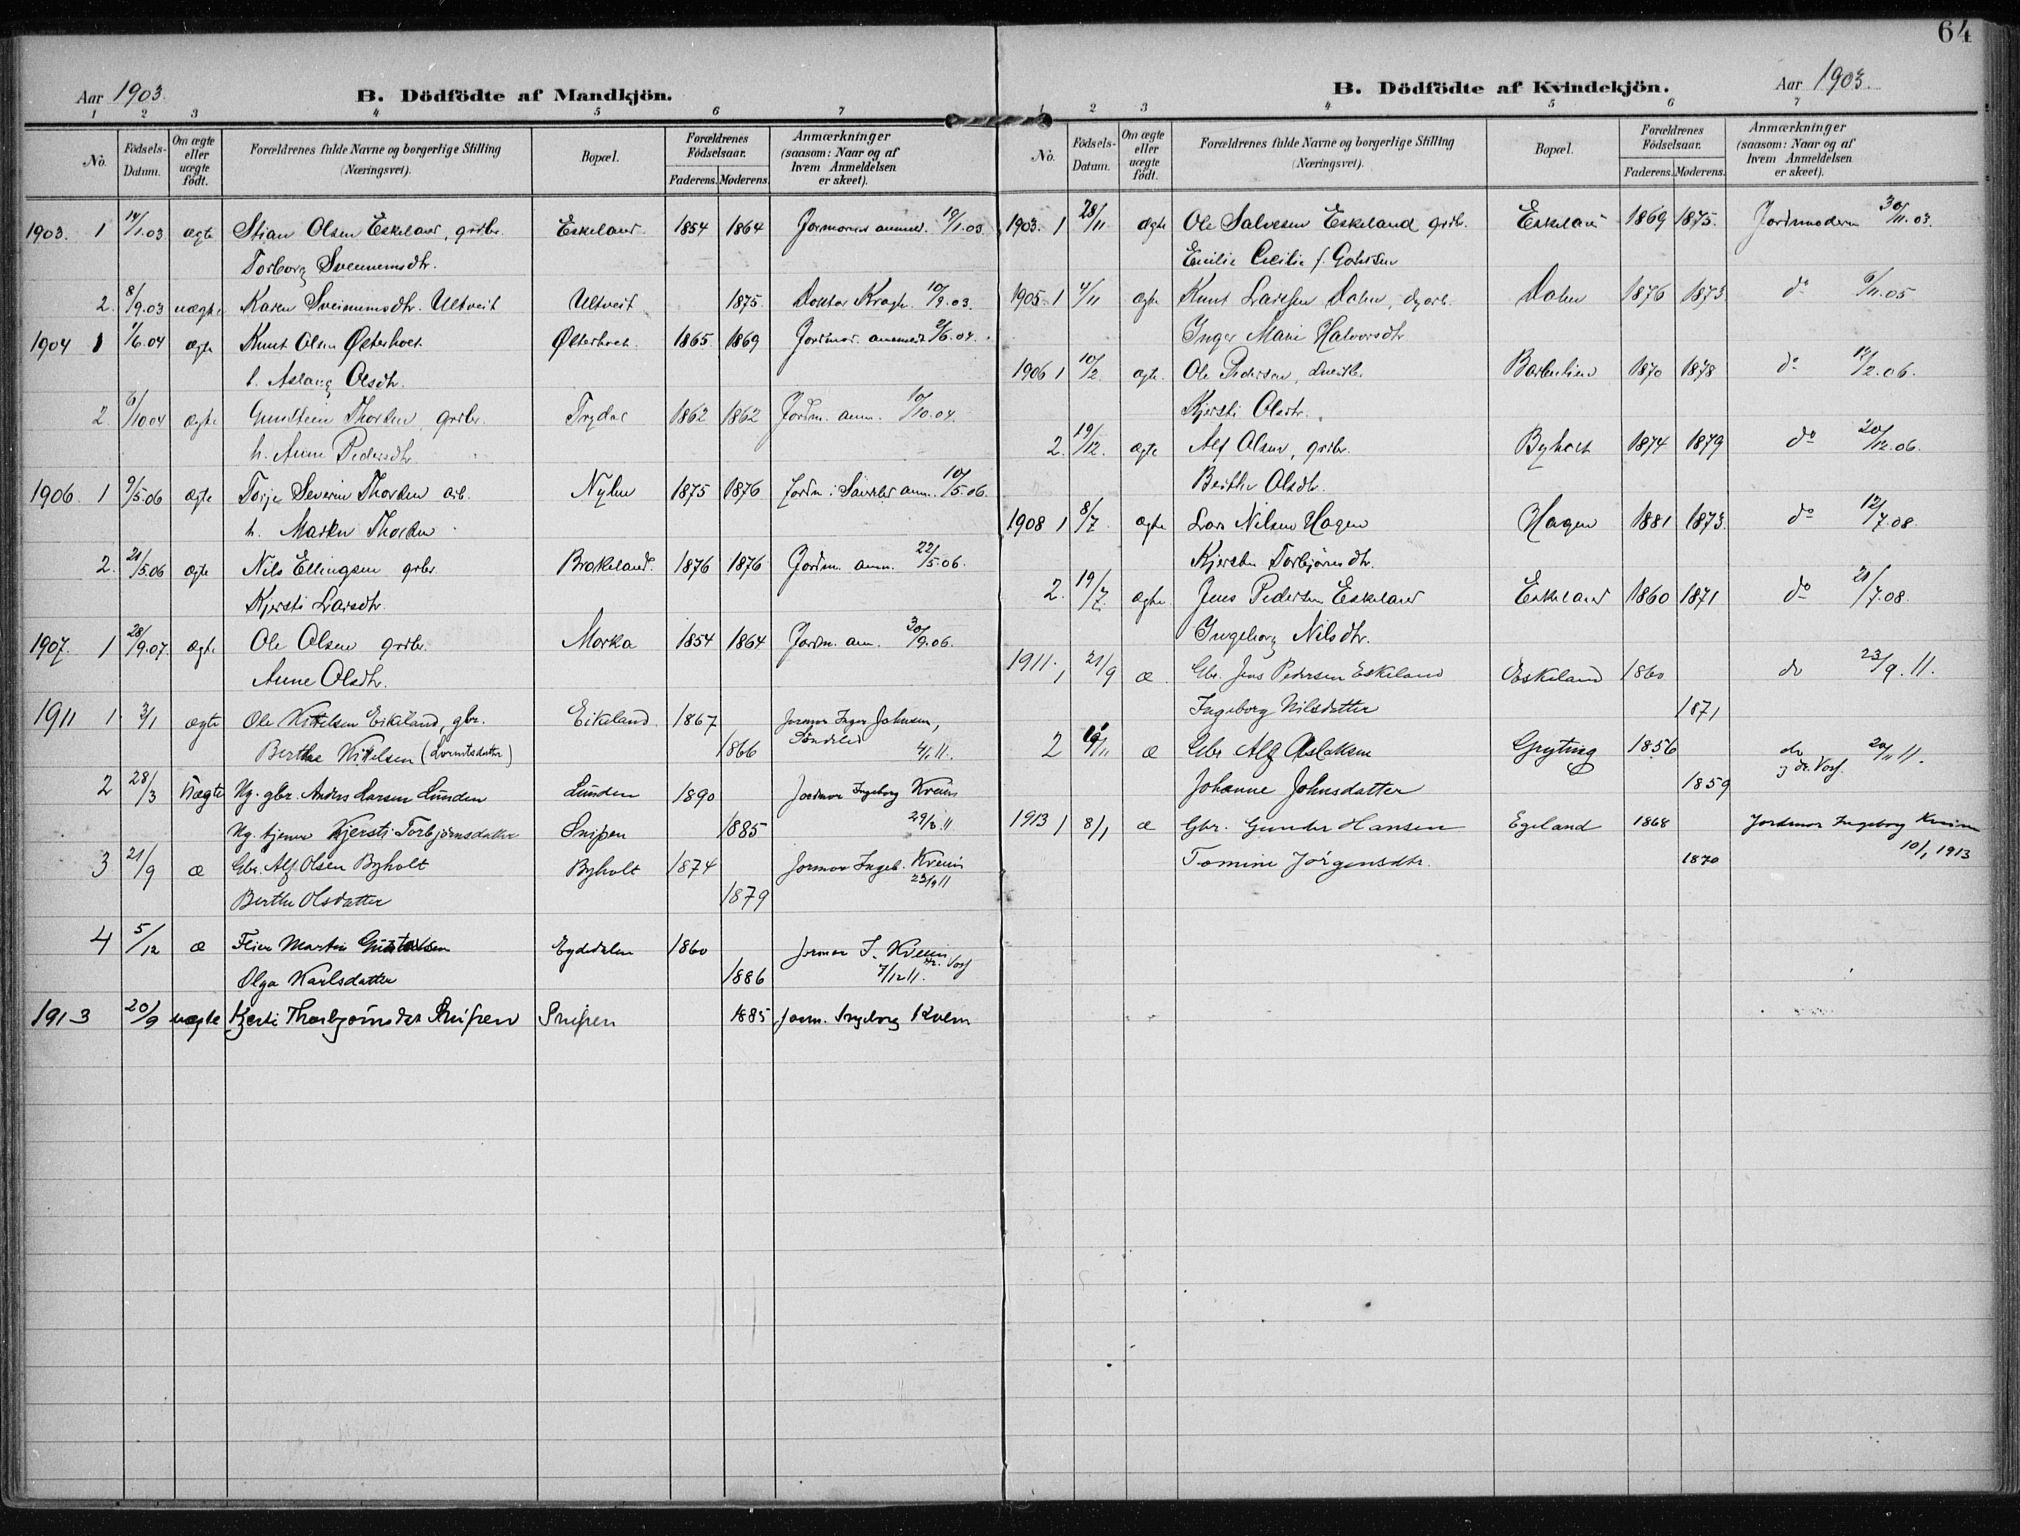 64
Aar 1903.
B. Dödfödte af Mandkjön.
1 2 3 4 5 6 7
No.
Födsels-Datum.
Om ægte eller uægte födt.
Forældrenes fulde Navne og borgerlige Stilling (Næringsvei).
Bopæl.
Forældrenes Födselsaar.
Faderens. Moderens.
Anmærkninger (saasom: Naar og af hvem Anmeldelsen er skeet).
1903. 1 14/1.03 ægte Stian Olsen Eskeland, grdbr. Eskeland 1854 1864 19/1.03
Torborg
2. 8/9.03 uægte Karen Ultveit Ultveit 1875 Doktor Kragh. 10/9.03
1904 1 1/6.04 ægte Knut Olsen Østerholt Østerholt 1865 1869 Jordmor 2/6.04
h. Aslaug Olsdtr.
2. 6/10 04 ægte Thorsen, grdbr. Trydal 1862 1862 Jordm. anm. 10/10.04
h. Anne Pedersdtr
1906. 1 9/5.06 ægte Torje Severin Thorsen arb. 1875 1876 Jordm. anm. 10/5.06
h.
2. 21/5.06 ægte Nils Ellingsen grbr. Brokeland. 1876 1876 Jordm. anm. 22/5.06.
Kjersti Larsdtr.
1907. 1 28/9.07. ægte Ole Olsen grdbr. Morka 1854 1864 Jordm. am. 30/9.06.
Anne Olsdtr.
1911 1. 3/1 ægte Ole Eikeland, gbr. Eikeland 1867 Jormor Inger Johnsen,
Berthe (Lorentsdatter) 1866 Söndeled 4/1 11.
2 28/3 Uægte Ug. gbr. Anders Larsen Lunden Lunden 1890 Jordmor Ingeborg Kveim
Ug. tjener Kjersti Torbjørnsdatter Snipen 1885 29/3 11
3 21/9 æ Gbr. Alf Olsen Byholt Byholt 1874 Jormor Ingeb. Kveim
Berthe Olsdatter 1879 23/9 11
4 5/12 æ Feier Martin Gustavsen Eydedalen 1860 Jormor I. Kveim
Olga Karlsdatter 1886 7/12 11.
1913 20/9 uægte Snipen Snipen 1885 Jorm. Ingeborg Kveim
B. Dödfödte af Kvindekjön.
Aar 1903.
1 2 3 4 5 6 7
No.
Födsels-Datum.
Om ægte eller uægte födt.
Forældrenes fulde Navne og borgerlige Stilling (Næringsvei).
Bopæl.
Forældrenes Födselsaar.
Faderens. Moderens.
Anmærkninger (saasom: Naar og af hvem Anmeldelsen er skeet).
1903. 1 28/11 ægte Ole Salvesen Eskeland grdbr. Eskeland 1869 1875. Jordmoderen 30/11.03.
Emilie Cecilie f.
1905. 1 4/11 ægte Knut Larssen Dalen, Dalen 1876 1873 do 6/11.05
Inger Marie Halvorsdtr
1906 1 10/2. ægte. Ole Pedersen, 1870 1878 do 12/2.06.
Kjersti Olsdtr.
2. 19/12. ægte Alf Olsen, grdbr. Byholt 1874 1879 do 20/12.06.
Berthe Olsdtr.
1908 1 8/7 ægte Lars Nilsen Hagen Hagen 1881 1873. do 12/7.08.
Kjersten Torbjørnsdtr.
2. 19/7. ægte Jens Pedersen Eskeland Eskeland 1860 1871 do 21/7.08.
Ingeborg Nilsdtr.
1911. 1 21/9 æ Gbr. Jens Pedersen Eskeland Eskeland 1860 do 23/9.11.
Ingeborg Nilsdatter 1871
2 /11 æ Gbr Alf Aslaksen Gryting 1856 do 20/11 11.
Johanne Johnsdatter 1859
1913 1 8/1 æ Gbr. Gunder Hansen Egeland 1868 Jordmor Ingeborg Kveim
Tomine Jörgensdtr. 1870 10/1 1913